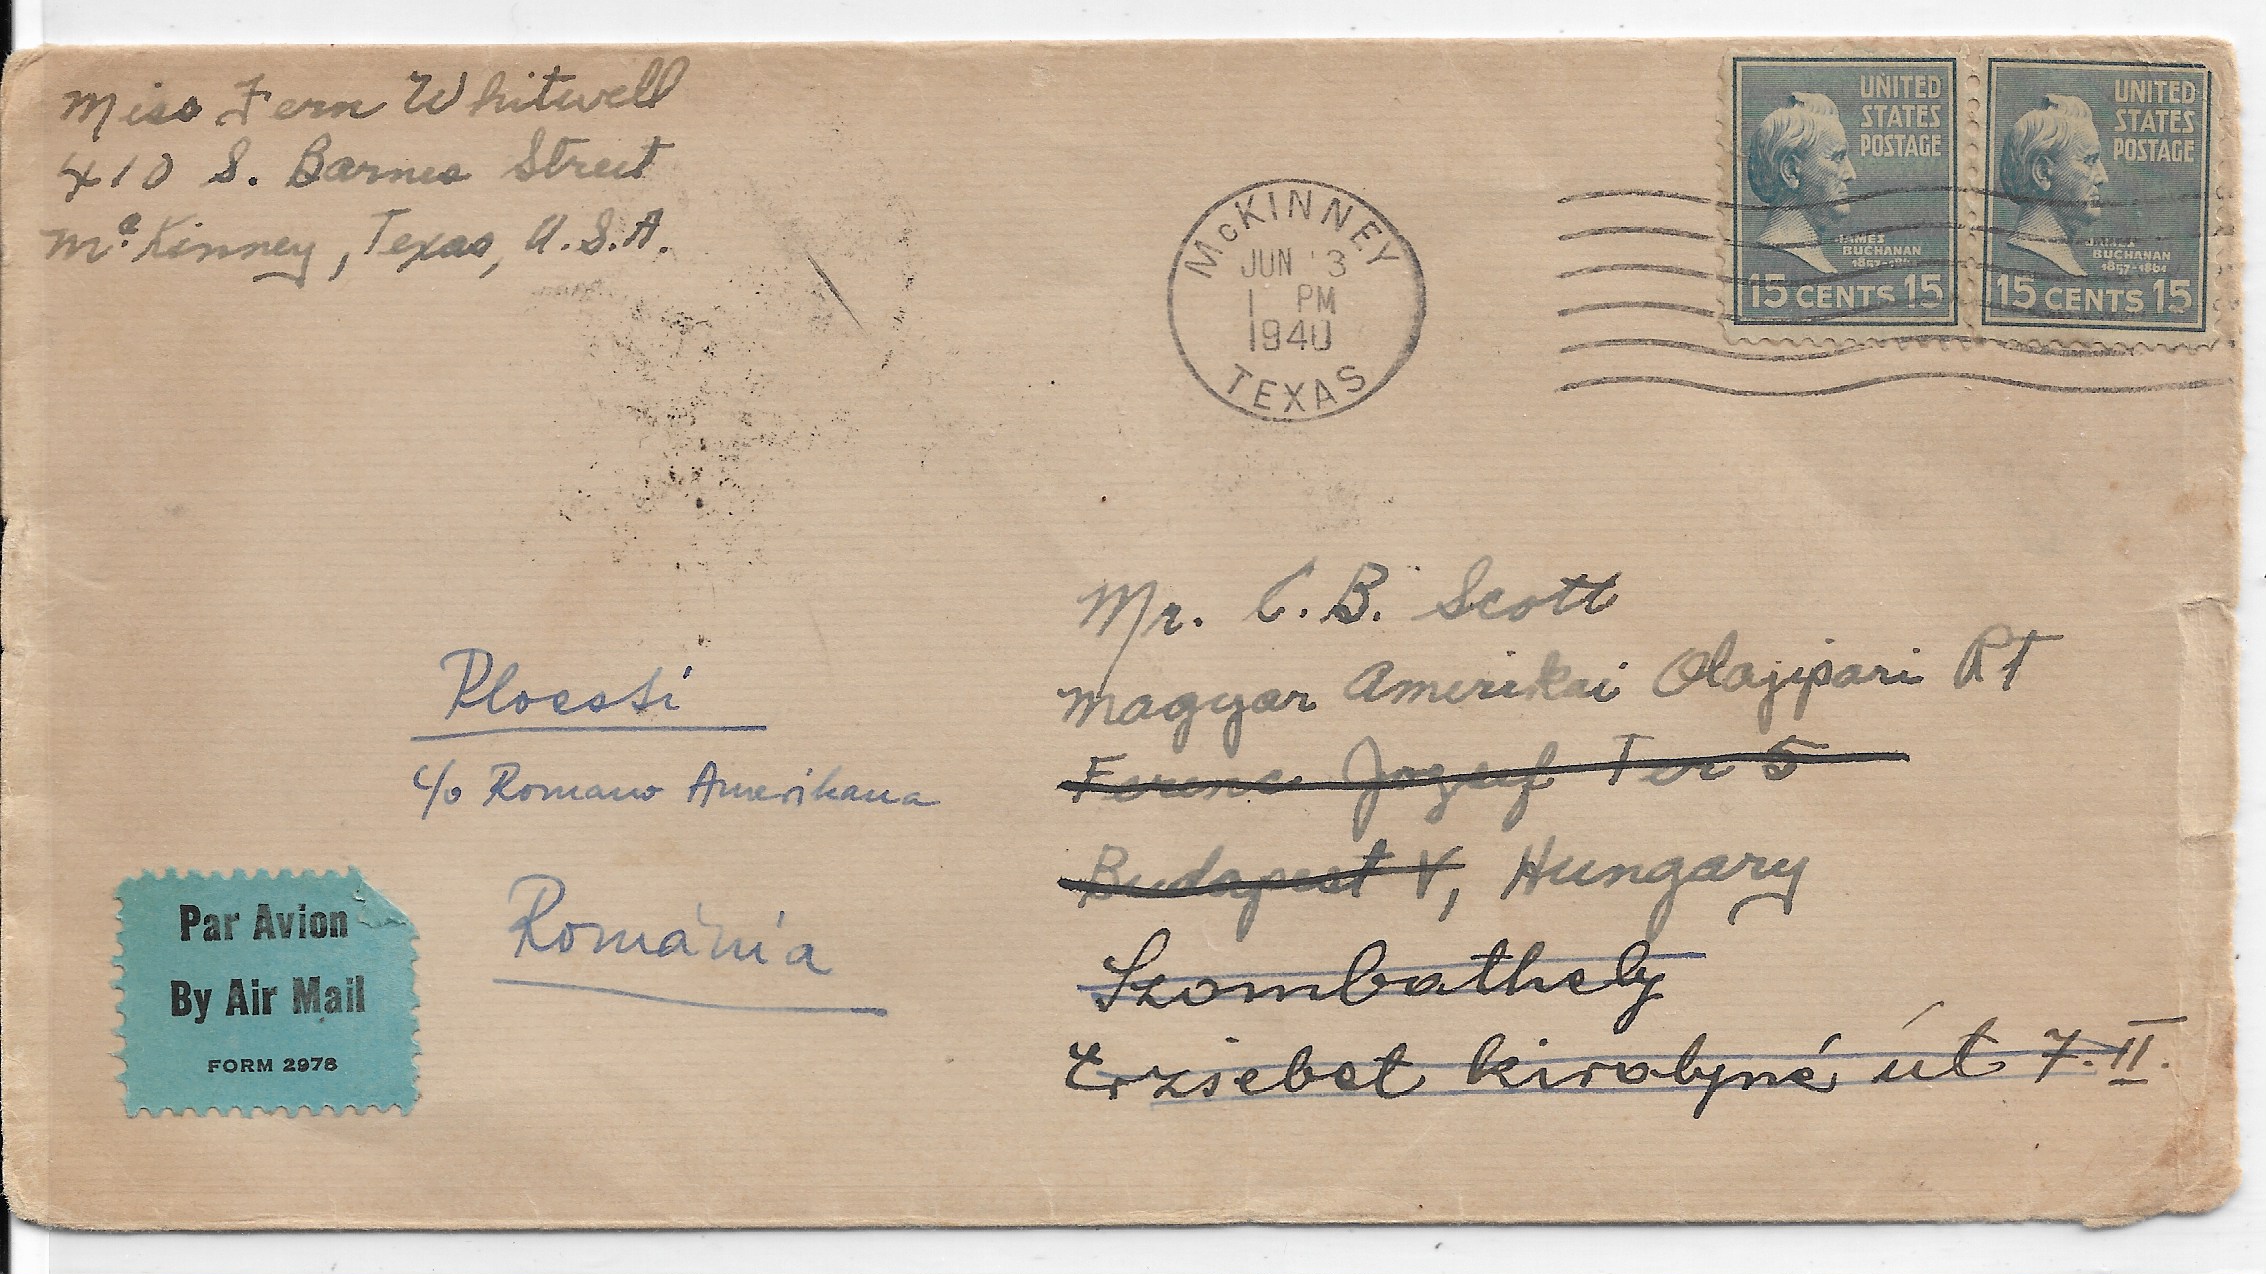 Miss Fern Whitwell
410 S. Barnes Street
McKinney, Texas, U.S.A.
McKINNEY
JUN 3
1 PM
1940
TEXAS
UNITED
STATES
POSTAGE
JAMES
BUCHANAN
1857-1861
15 CENTS 15
UNITED
STATES
POSTAGE
JAMES
BUCHANAN
1857-1861
15 CENTS 15
Mr. C. B. Scott
Magyar Amerikai Olajipari Rt
Ferenc Jozsef Ter 5
Budapest V, Hungary
Szombathely
Erzsebet kiralyné út 7. II.
Ploesti
c/o Romano Amerikana
România
Par Avion
By Air Mail
FORM 2978